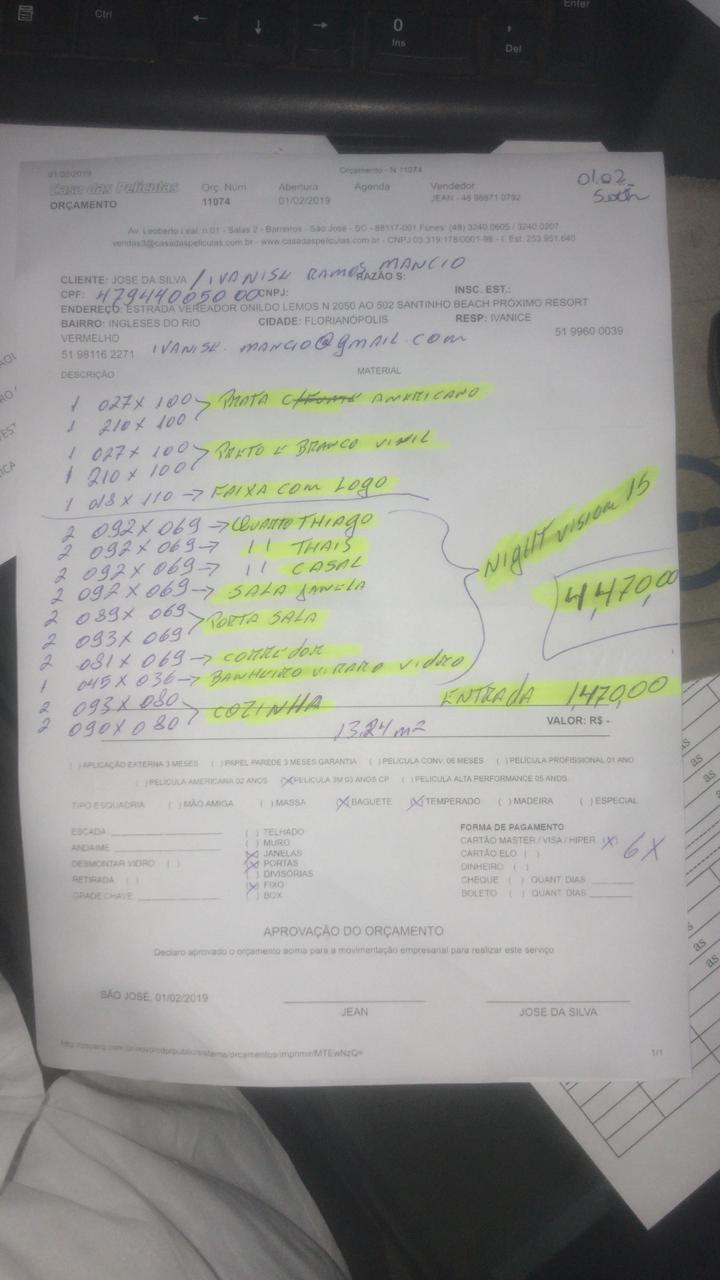 01/02/2019
Orçamento - N 11074
Casa das Películas
Orç. Num
Abertura
Agenda
Vendedor
ORÇAMENTO
11074
01/02/2019
JEAN - 48 98871 0792
01.02
Av. Leoberto Leal, n.01 - Salas 2 - Barreiros - São José - SC - 88117-001 Fones: (48) 3240 0605 / 3240 0207
vendas3@casadaspeliculas.com.br - www.casadaspeliculas.com.br - CNPJ 03.319.178/0001-98 - I. Est. 253.951.640
CLIENTE: JOSE DA SILVA / IVANISE RAMOS MANCIO
RAZÃO S:
CPF: 47944005000 CNPJ:
INSC. EST.:
ENDEREÇO: ESTRADA VEREADOR ONILDO LEMOS N 2050 AO 502 SANTINHO BEACH PRÓXIMO RESORT
BAIRRO: INGLESES DO RIO
CIDADE: FLORIANÓPOLIS
RESP: IVANICE
VERMELHO
51 9960 0039
51 98116 2271
IVANISE.MANCIO@gmail.com
DESCRIÇÃO
MATERIAL
1 027 x 100 PRATA C/ AMERICANO
1 210 x 100
1 027 x 100 PRETO E BRANCO VINIL
1 210 x 100
1 018 x 110 → FAIXA COM LOGO
2 092 x 069 → QUARTO THIAGO
2 092 x 069 → 11 THAIS
2 092 x 069 → 11 CASAL
2 092 x 069 → SALA JANELA
2 089 x 069 PORTA SALA
2 093 x 069
2 081 x 069 → CORREDOR
1 045 x 036 → BANHEIRO VIRADO VIDRO
2 093 x 080 COZINHA
2 090 x 080
NIGHT VISION 15
4.470,00
ENTRADA 1.470,00
13,24 m2
VALOR: R$ -
( ) APLICAÇÃO EXTERNA 3 MESES ( ) PAPEL PAREDE 3 MESES GARANTIA ( ) PELÍCULA CONV. 06 MESES ( ) PELÍCULA PROFISSIONAL 01 ANO
( ) PELÍCULA AMERICANA 02 ANOS (X) PELÍCULA 3M 03 ANOS CP ( ) PELÍCULA ALTA PERFORMANCE 05 ANOS
TIPO ESQUADRIA ( ) MÃO AMIGA ( ) MASSA (X) BAGUETE (X) TEMPERADO ( ) MADEIRA ( ) ESPECIAL
ESCADA
ANDAIME
DESMONTAR VIDRO ( )
RETIRADA ( )
GRADE CHAVE
( ) TELHADO
( ) MURO
(X) JANELAS
(X) PORTAS
( ) DIVISÓRIAS
(X) FIXO
( ) BOX
FORMA DE PAGAMENTO
CARTÃO MASTER / VISA / HIPER (X) 6X
CARTÃO ELO ( )
DINHEIRO ( )
CHEQUE ( ) QUANT. DIAS
BOLETO ( ) QUANT. DIAS
APROVAÇÃO DO ORÇAMENTO
Declaro aprovado o orçamento acima para a movimentação empresarial para realizar este serviço
SÃO JOSÉ, 01/02/2019
JEAN
JOSE DA SILVA
1/1
Ctrl
←
↓
→
0
Ins
,
Del
Enter